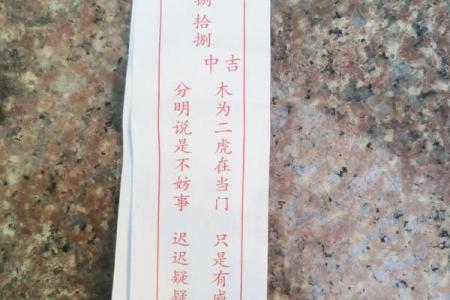 捌拾捌
中吉
木为二虎在当门 只是有威
分明说是不妨事 迟迟疑疑